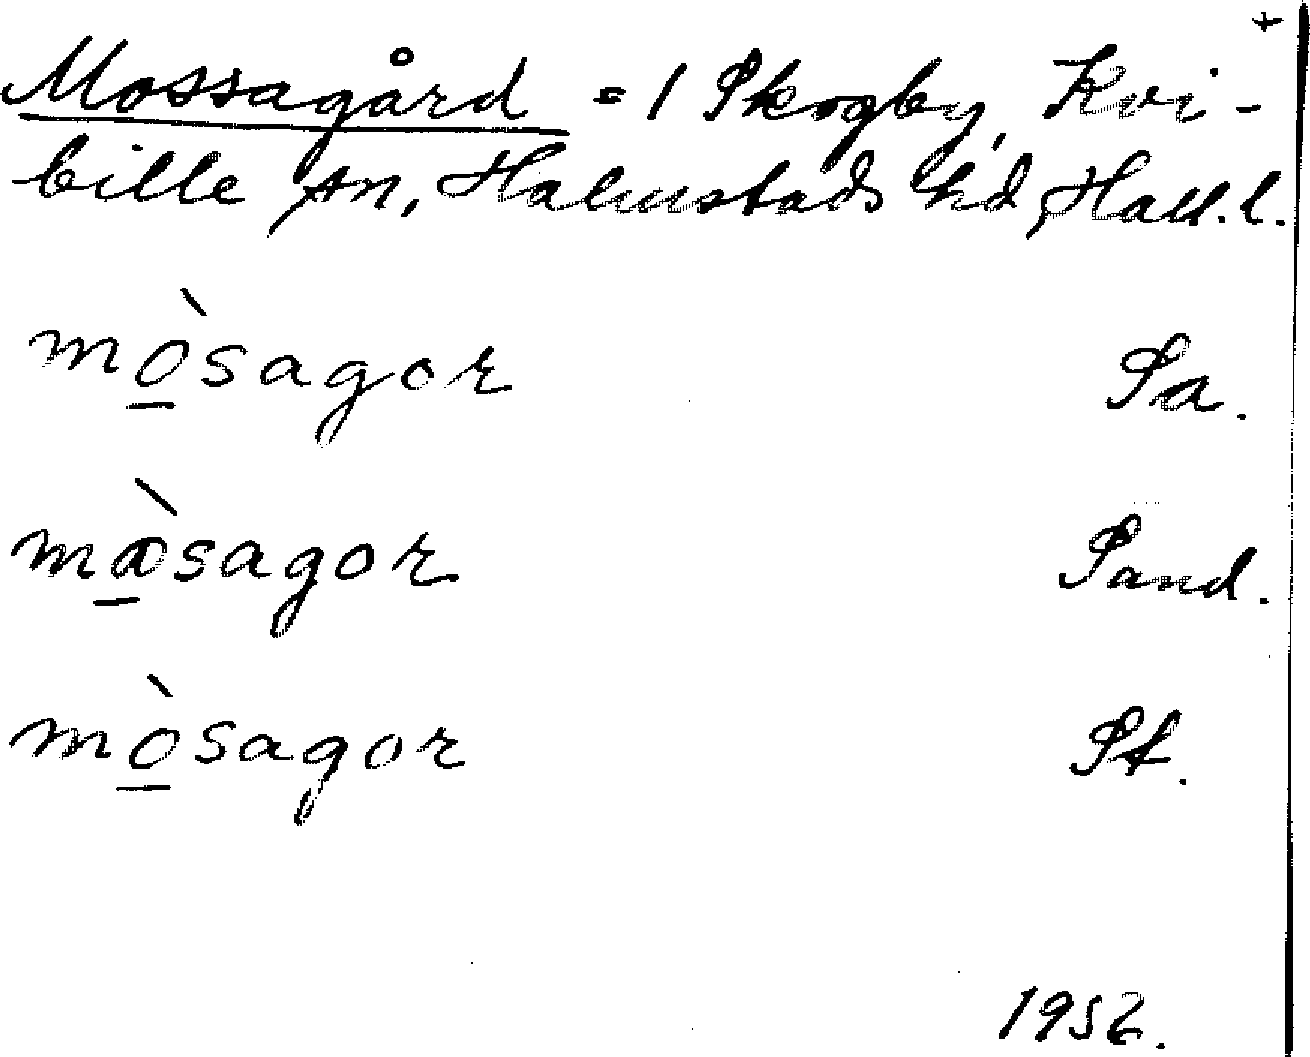 +
Mossagård = 1 Skogby, Kvi-
bille sn, Halmstads hd, Hall. l.
mò̲sagor Sa.
mà̲sagor Sand.
mò̲sagor St.
1952.